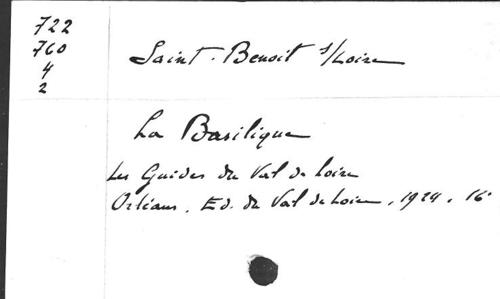 722
760
4
2
Saint-Benoit s/Loire
La Basilique
Les Guides du Val de Loire
Orléans, Ed. du Val de Loire, 1929, 16°